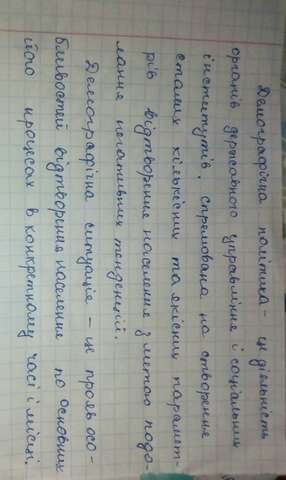 Демографічна політика – це діяльність
органів державного управління і соціальних
інститутів, спрямована на створення
сталих кількісних та якісних парамет-
рів відтворення населення з метою подо-
лання негативних тенденцій.
Демографічна ситуація – це прояв осо-
бливостей відтворення населення по основних
його процесах в конкретному часі і місці.